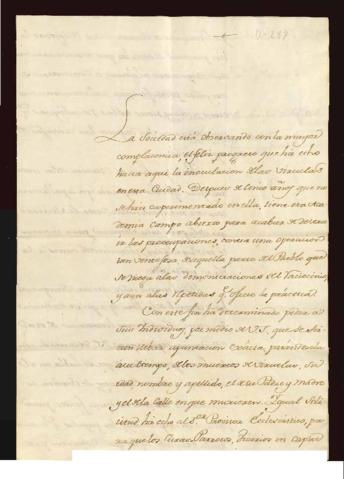 La Sociedad está observando con la mayor
complacencia, el feliz progreso que ha echo
hasta aqui la inoculacion de las viruelas
en esta Ciudad. Despues de cinco años que no
se han experimentado en ella, tiene esta Aca
demia campo abierto para acabar de
las preocupaciones, contra una operacion
tan ventajosa de aquella parte del Pueblo que
se niega a las demonstraciones de el
y aun a las q.e ofrece la practica.
Con este fin ha determinado pedir a
sus Individuos, por medio de V.S. que se
apuntacion exacta,
de los muertos de viruelas, su
edad nombre y apellido, el de su Padre y madre
y el de la Calle en que murieren. Igual soli
citud ha echo al S.or Provisor Eclesiastico, pa
ra que los Curas Parrocos,